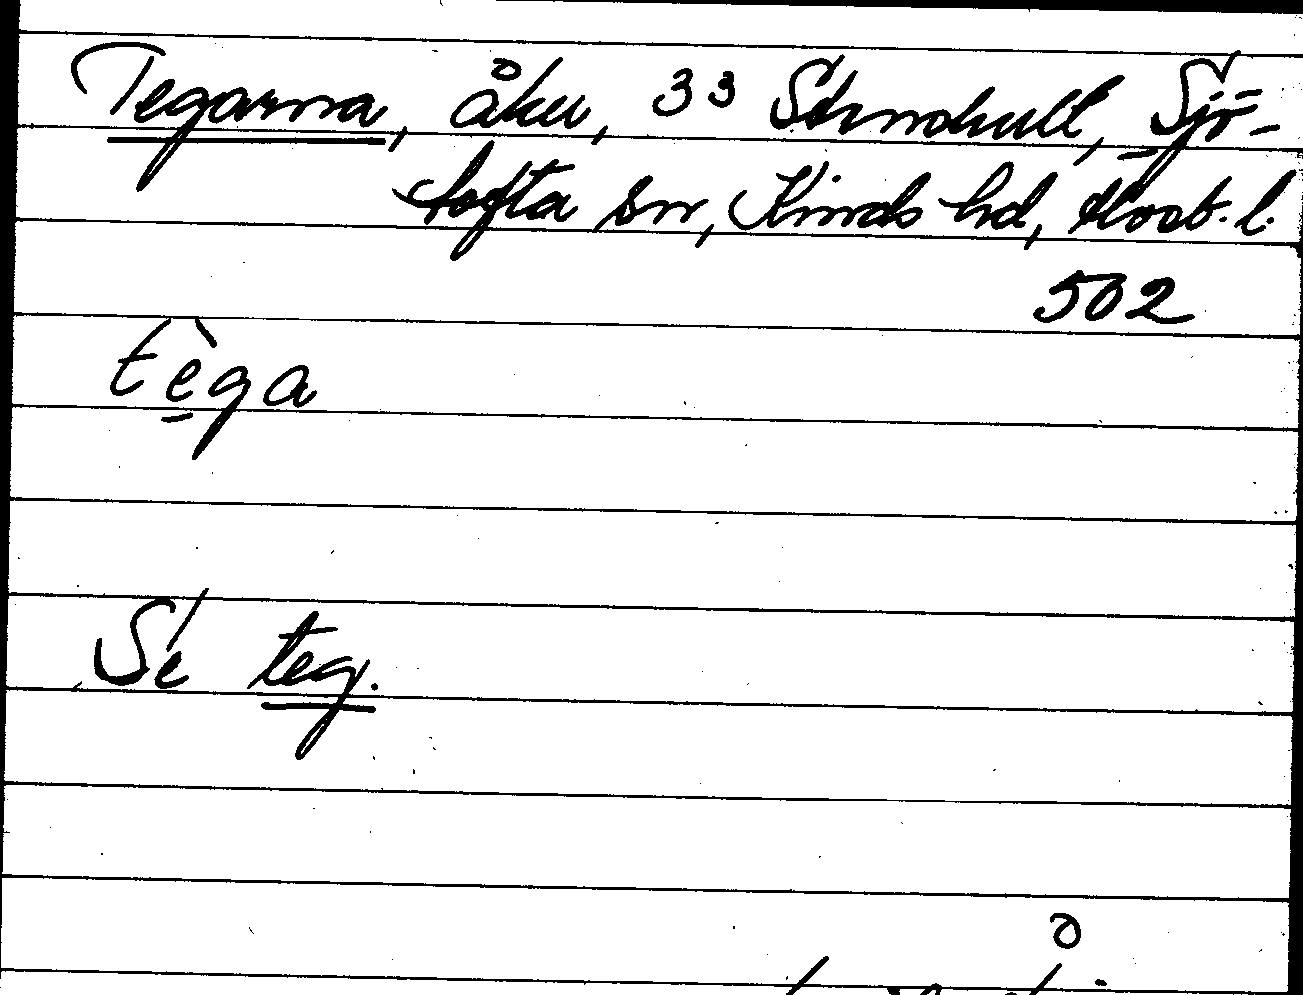 Tegarna, åker, 3³ Strmhult, Sjö-
tofta sn, Kinds hd, Älvsb. l.
502
tèga
Se teg.